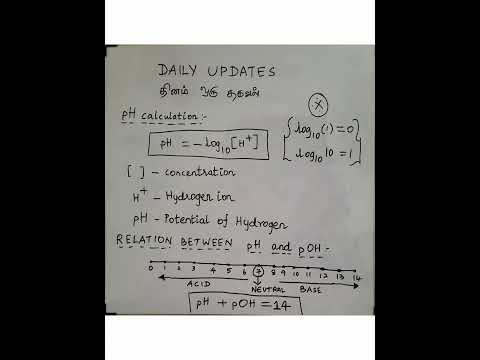 DAILY UPDATES
தினம் ஒரு தகவல்
pH calculation :-
pH = -log₁₀[H⁺]
log₁₀(1) = 0
log₁₀10 = 1
[ ] - concentration
H⁺ - Hydrogen ion
pH - Potential of Hydrogen
RELATION BETWEEN pH and pOH:-
0 1 2 3 4 5 6 7 8 9 10 11 12 13 14
ACID NEUTRAL BASE
pH + pOH = 14